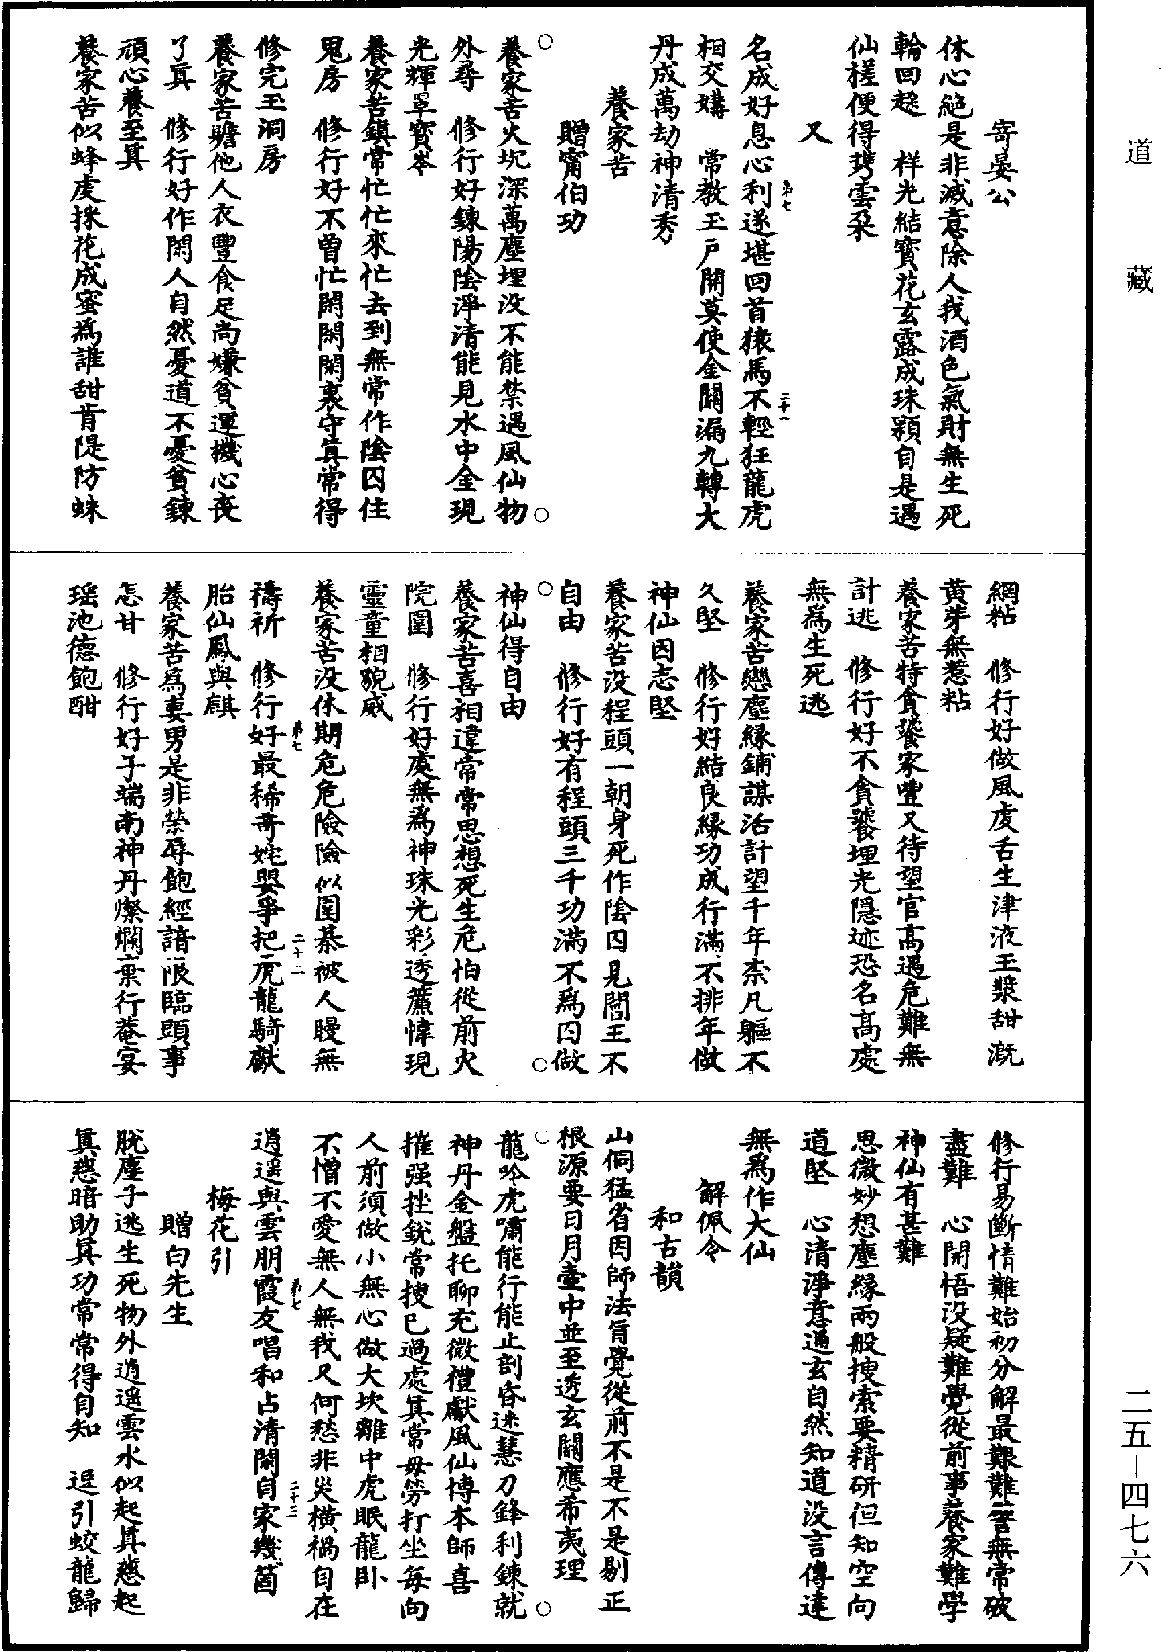 道藏
二五-四七六
寄晏公
休心絕是非滅意除人我酒色氣財無生死
輪回趓　祥光結寶花玄露成珠顆自是遇
仙槎便得琱雲朵
又
名成好息心利遂堪回首猿馬不輕狂龍虎
相交媾　常教玉戶開莫使金關漏九轉大
丹成萬劫神清秀
養家苦
贈甯伯功
養家苦火坑深萬塵埋沒不能禁遇風仙物
外尋　修行好鍊陽陰淨清能見水中金現
光輝罩寶岑
養家苦鎮常忙忙來忙去到無常作陰囚住
鬼房　修行好不曾忙閑閑閑裏守真常得
修完玉洞房
養家苦贍他人衣豐食足尚嫌貧運機心喪
了真　修行好作閑人自然憂道不憂貧鍊
頑心養至真
養家苦似蜂虔採花成蜜為誰甜肯隄防蛛
網粘　修行好做風虔舌生津液玉漿甜溉
黃芽無惹粘
養家苦特貪饕家豐又待望官高遇危難無
計逃　修行好不貪饕埋光隱迹恐名高處
無為生死逃
養家苦戀塵緣鋪謀活計望千年柰凡軀不
久堅　修行好結良緣功成行滿不排年做
神仙因志堅
養家苦沒程頭一朝身死作陰囚見閻王不
自由　修行好有程頭三千功滿不為囚做
神仙得自由
養家苦喜相違常常思想死生危怕從前火
院圍　修行好處無為神珠光彩透簾幃現
靈童相貌威
養家苦沒休期危危險險似圍碁被人謾無
禱祈　修行好最稀奇姹嬰爭把虎龍騎獻
胎仙鳳與麒
養家苦為妻男是非榮辱飽經諳限臨頭事
怎甘　修行好子端南神丹燦爛棄行菴宴
瑤池德飽酣
修行易斷情難始初分解最艱難二言無常破
盡難　心開悟沒疑難覺從前事養家難學
神仙有甚難
思微妙想塵緣兩般搜索要精研但知空向
道堅　心清淨意通玄自然知道沒言傳達
無為作大仙
解佩令
和古韻
山侗猛省因師法旨覺從前不是不是剔正
根源要日月壺中並至透玄關應希夷理
龍吟虎嘯能行能止剖昏迷慧刀鋒利鍊就
神丹金盤托聊充微禮獻風仙博本師喜
摧强挫銳常搜已過處真常毋勞打坐每向
人前須做小無心做大坎離中虎眠龍臥
不憎不愛無人無我又何愁非災橫禍自在
逍遥與雲朋霞友唱和占清閑自家幾箇
梅花引
贈白先生
脫塵子逃生死物外逍遥雲水似起真慈起
真慈暗助真功常常得自知　逞引蛟龍歸
第七
二十一
第七
二十二
第七
二十三